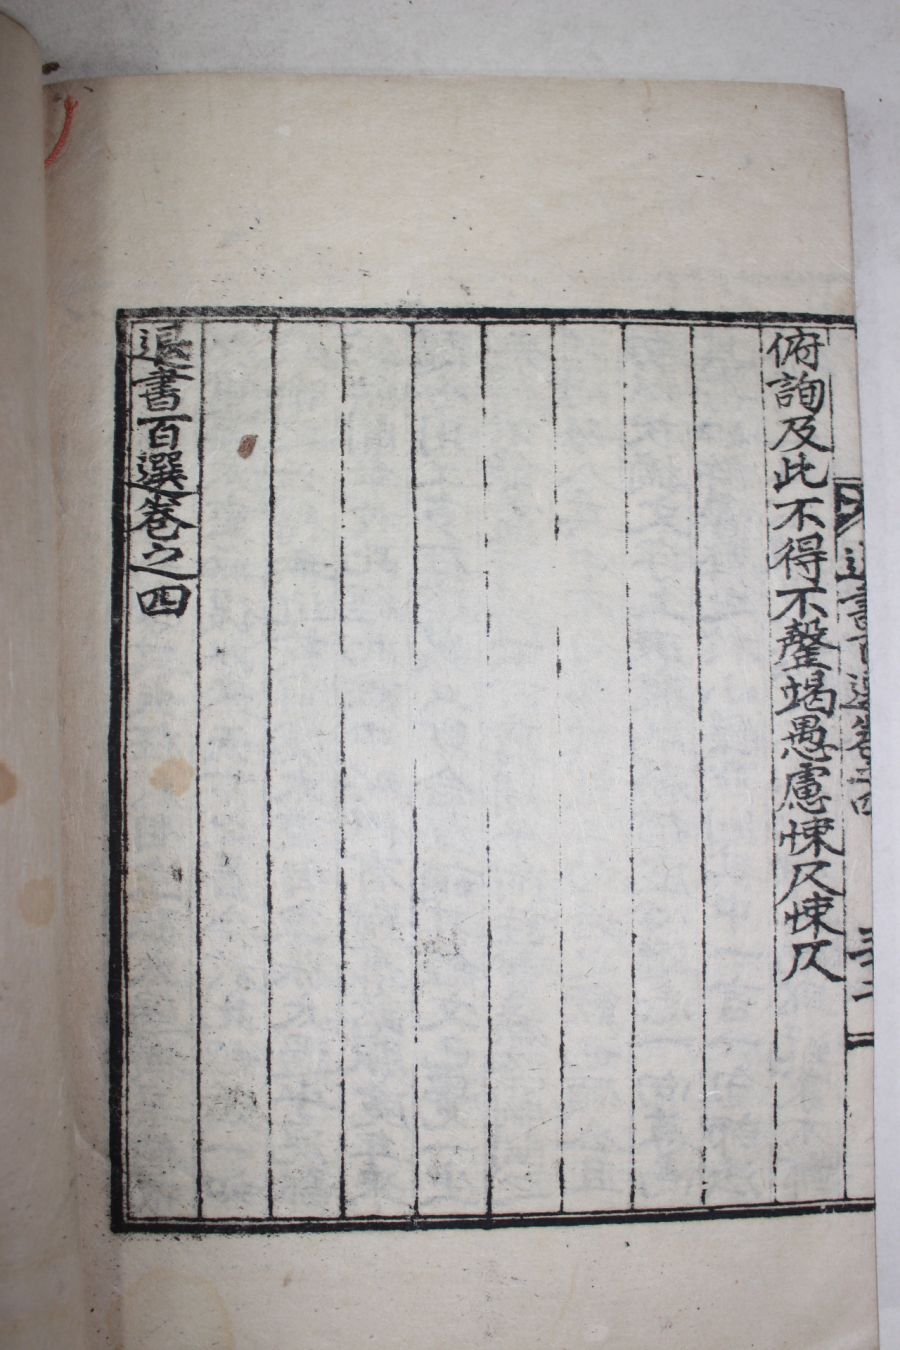 俯詢及此不得不罄竭愚慮悚仄悚仄
退書百選卷之四
退書百選卷之四
三十二